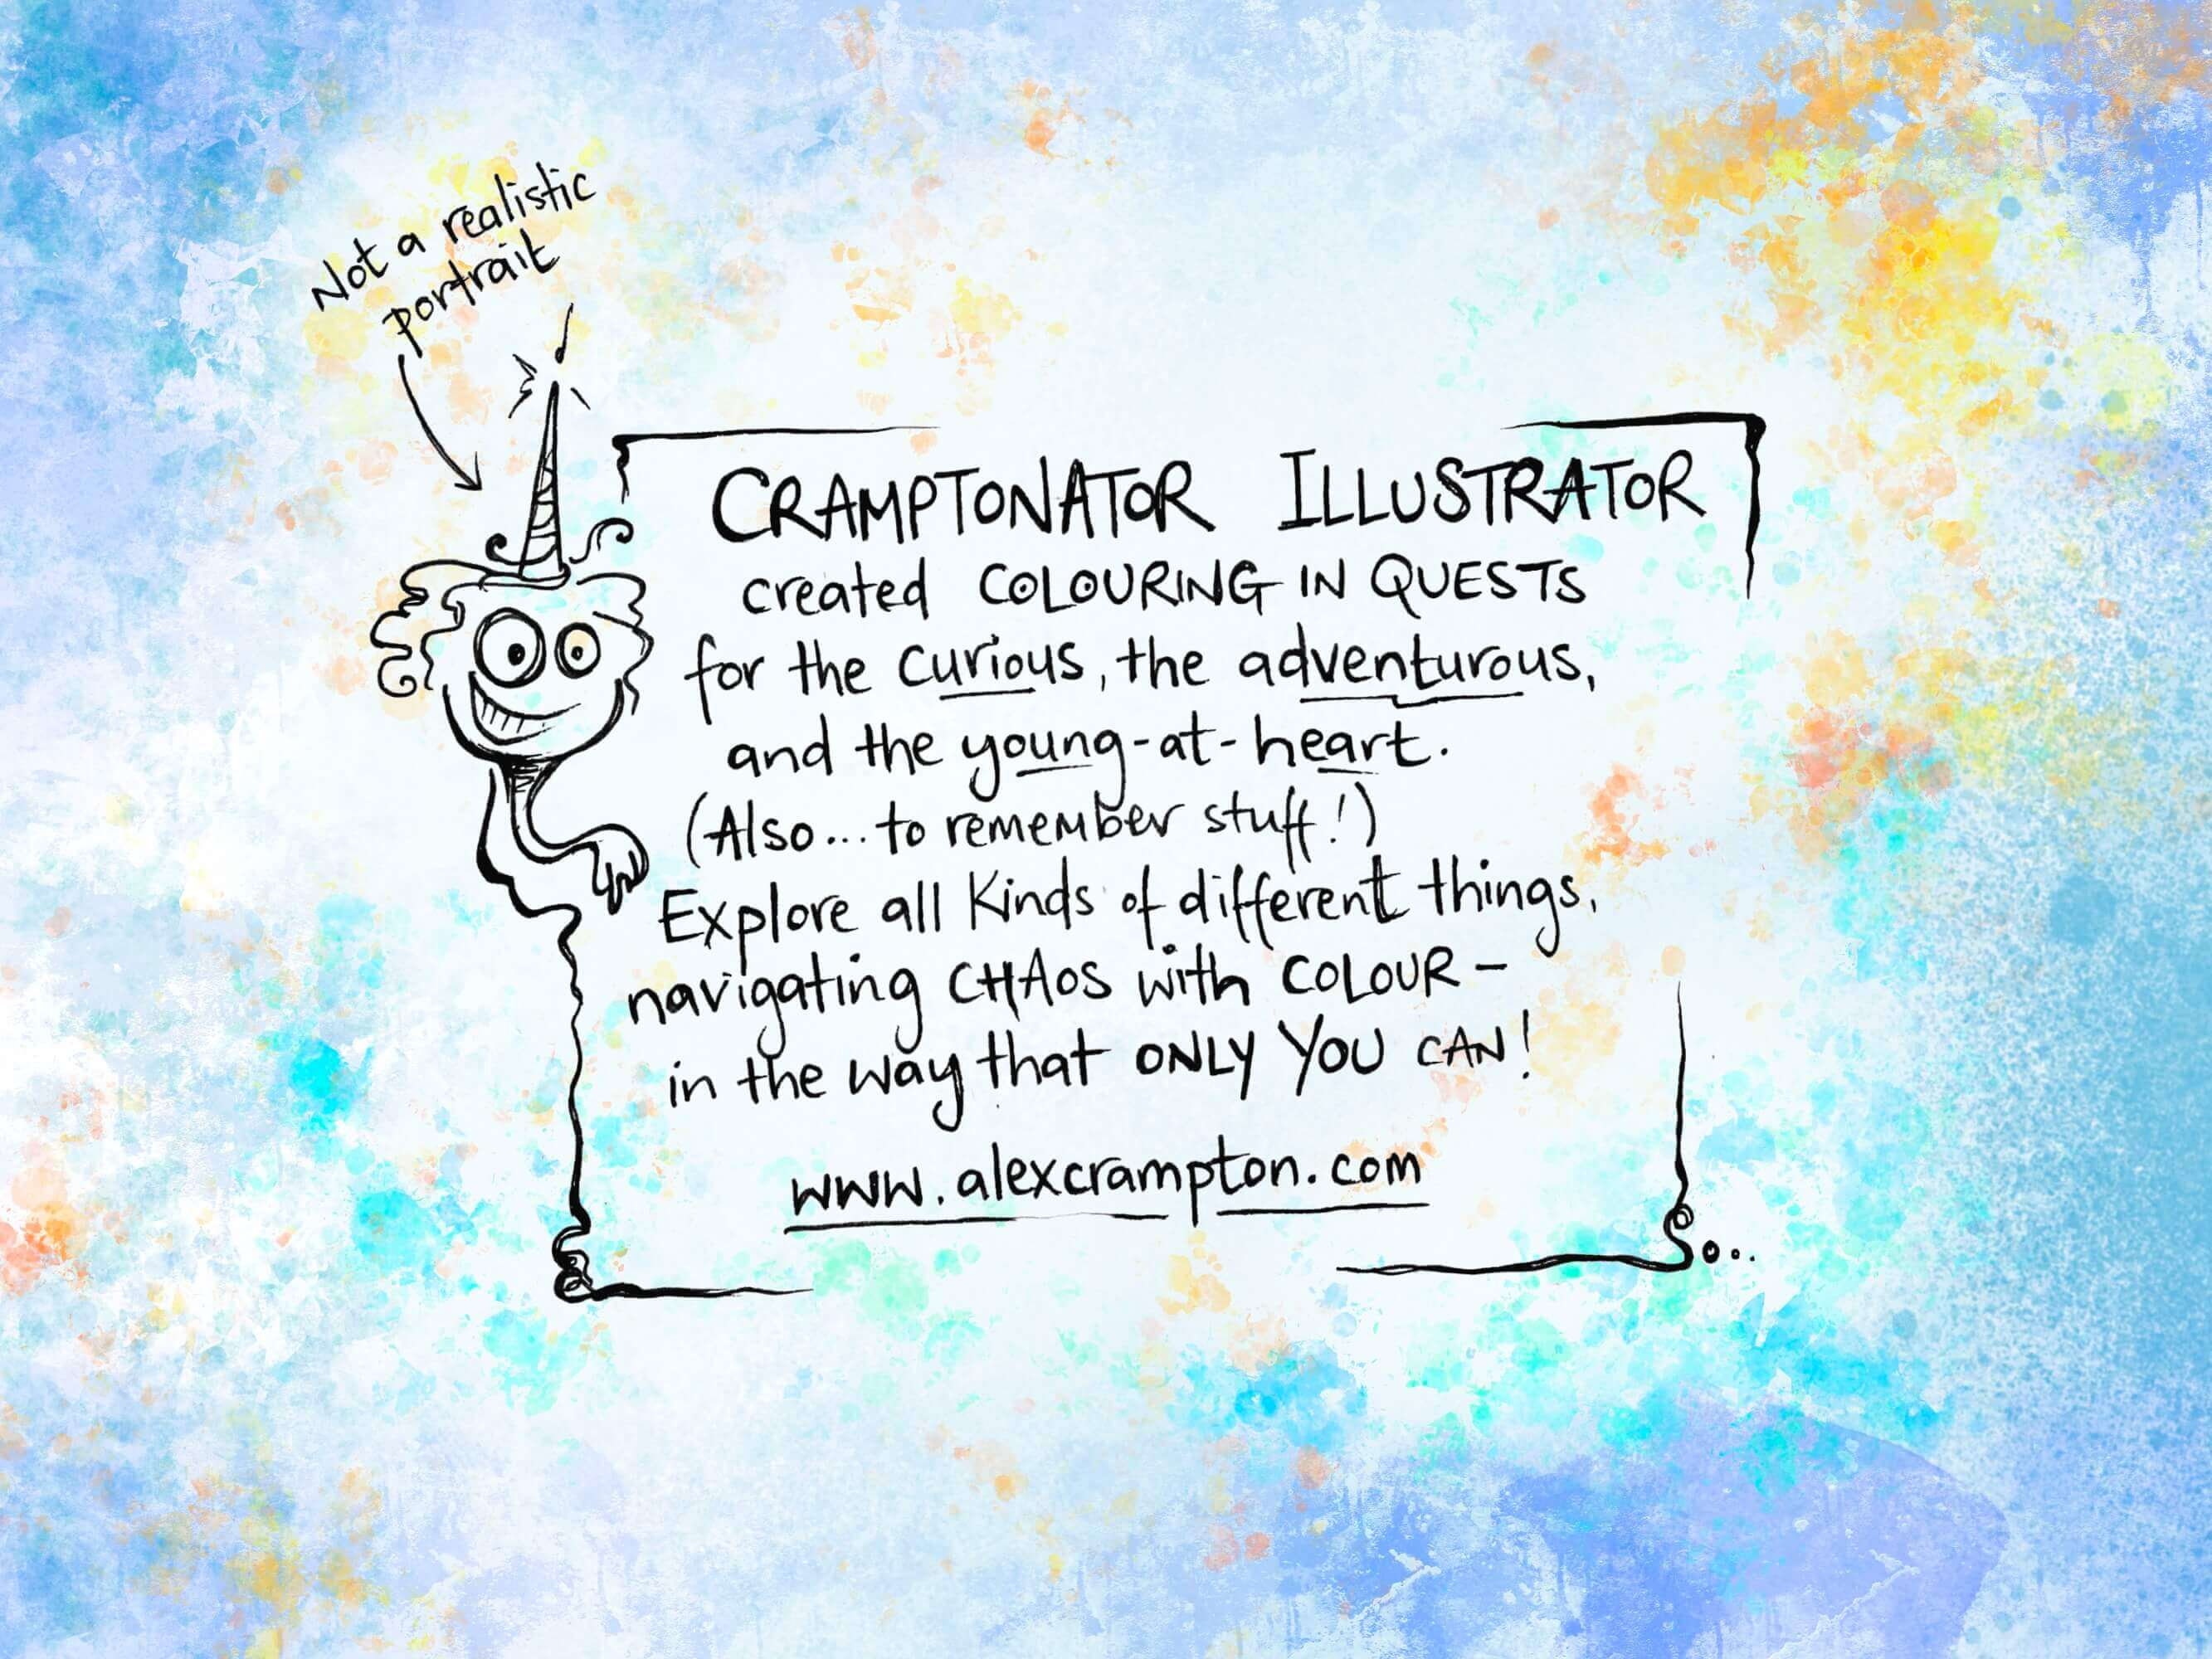 Not a realistic
portrait
CRAMPTONATOR ILLUSTRATOR
created COLOURING IN QUESTS
for the curious, the adventurous,
and the young-at-heart.
(Also... to remember stuff!)
Explore all kinds of different things,
navigating CHAOS with COLOUR -
in the way that ONLY YOU CAN!
www.alexcrampton.com